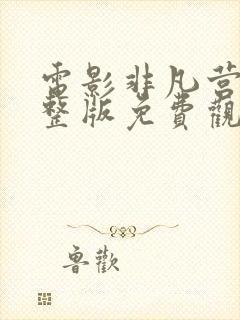 電影非凡营
整版免費觀
魯歡